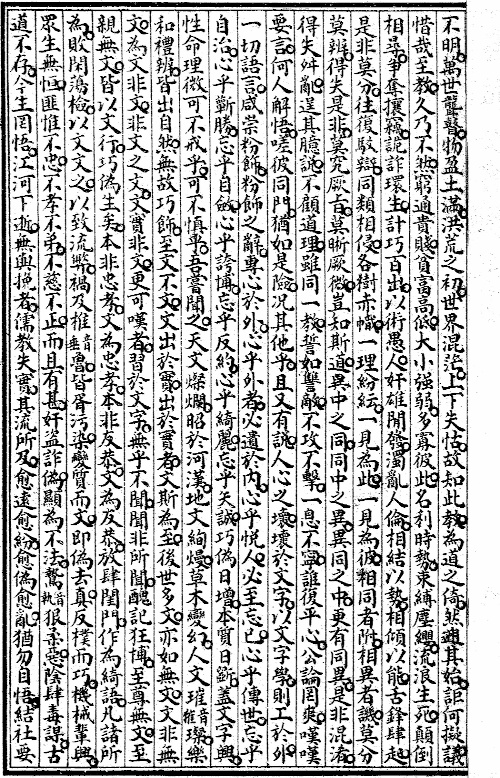 不明萬世聾瞽物盈土滿洪荒之初世界混茫上下失怙故知此教為道之倚然遡其始詎何擬議
惜哉至教久乃不然窮通貴賤貧富高低大小強弱多寡彼此名利時勢束縛塵纓流浪生死顛倒
相尋爭奪攘竊詭詐環生計巧百出以術愚人奸雄閒發濁亂人倫相結以勢相傾以能舌鋒肆起
是非莫分往復駁辯同類相侵各樹赤幟一理紛紜一見為此一見為彼相同者附相異者譏莫分
莫辨得失是非莫究厥旨莫晰厥微豈如斯道異中之同同中之異異同之中更有同異是非混淆
得失舛亂逞其臆說不顧道理雖同一教誓如讐敵不攻不擊一息不寧誰復平心公論罔爽嘆嘆
要言何人解悟嗟彼同門猶如是險况其他乎且又有說人心之壞壞於文字以文字學則工於外
一切語言咸崇粉飾粉飾之辭專心於外心乎外者必遺於内心乎悅人必至忘己心乎傳世忘乎
自治心乎蘄勝忘乎自斂心乎誇博忘乎反約心乎綺麗忘乎矢誠巧偽日增本實日斲蓋文字興
性命理微可不戒乎可不慎乎吾嘗聞之天文燦爛昭於河漢地文絢熳草木巒幻人文璀璨樂
和禮辨皆出自然無故巧飾至文不文文出於實出於實者文斯為至後世多文亦如無文文非無
文為文非文非文之文文實非文更可嘆者習於文字無乎不聞聞非所聞醜記狂博至尊無文至
親無文皆以文行巧偽生矣本非忠孝文為忠孝本非友恭文為友恭放肆閨門作為綺語凡諸所
為敗閑蕩檢以文文之以致流弊禍及椎音垂魯皆胥污染變質而文即偽去真反樸而巧機械羣興
眾生無恒匪惟不忠不孝不弟不慈不正而且有甚奸盜詐偽顯為不法音執狠柔惡陰肆毒謀古
道不存今生罔悟江河下逝無與挽者儒教失實其流所及愈遠愈紛愈偽愈亂猶勿自悟結社要